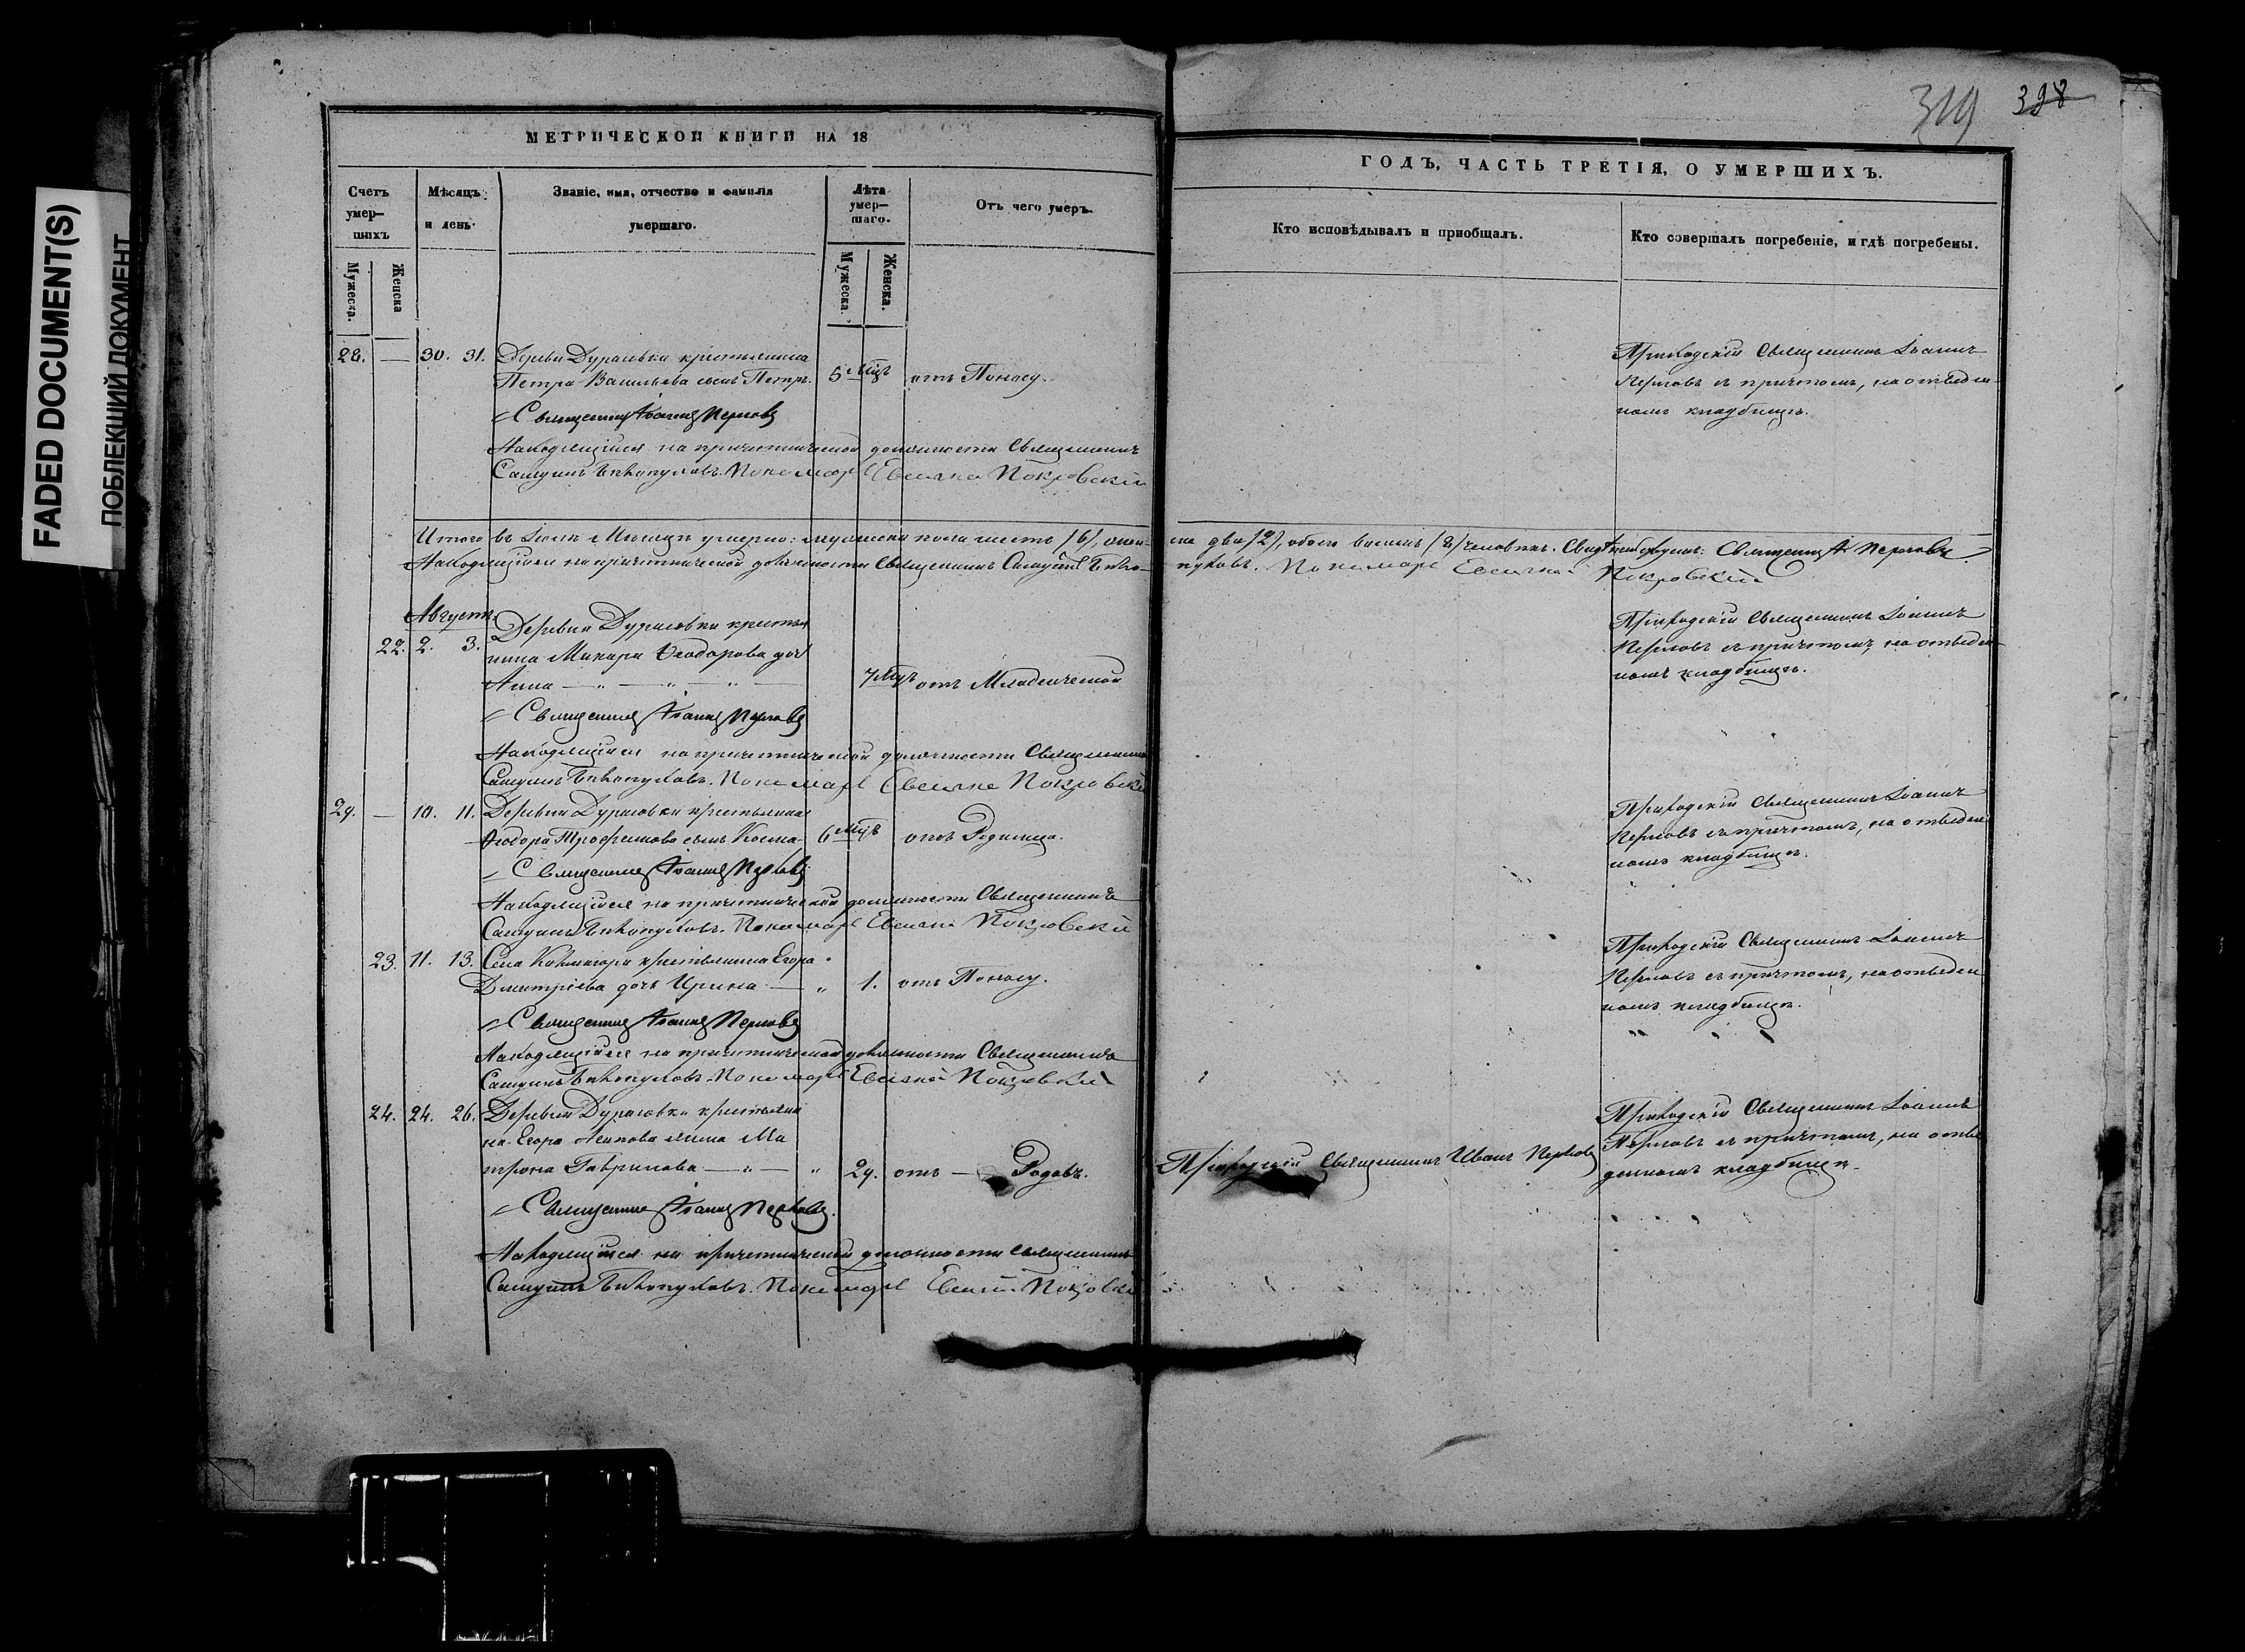 FADED DOCUMENT(S)
ПОБЛЕКШИЙ ДОКУМЕНТ
319 398
МЕТРИЧЕСКОЙ КНИГИ НА 18
ГОДЪ, ЧАСТЬ ТРЕТІЯ, О УМЕРШИХЪ.
Счетъ умер-шихъ
Мѣсяцъ и день.
Званіе, имя, отчество и фамилія умершаго.
Лѣта умер-шаго.
Отъ чего умеръ.
Кто исповѣдывалъ и пріобщалъ.
Кто совершалъ погребеніе, и гдѣ погребены.
Мужеска.
Женска
Мужеска.
Женска.
28. — 30. 31. Деревни Дурасовки крестьянина
Петра Васильева сынъ Петръ. 5 мцъ отъ Поносу.
Священникъ Іоаннъ Перловъ
Находящійся на причетнической должности Священникъ
Самуилъ Пономарь Евсигней Покровскій
Приходскій Священникъ Іоаннъ
Перловъ съ причтомъ, на отведен-
номъ кладбищѣ.
Итого въ Іюлѣ Мѣсяцѣ умерло: мужеска пола шесть /6/, жен-
ска два /2/, обоего восемь /8/ человѣкъ. Свидѣтельствуемъ: Священникъ І. Перловъ
Находящійся на причетнической должности Священникъ Самуилъ
Пономарь Евсигней Покровскій
Августъ.
22. 2. 3. Деревни Дурасовки крестья
нина Макара Ѳеодорова дочь
Анна — „ — „ — „ — 7 мцъ отъ Младенческой
Священникъ Іоаннъ Перловъ
Находящійся на причетнической должности Священникъ
Самуилъ Пономарь Евсигней Покровскій
Приходскій Священникъ Іоаннъ
Перловъ съ причтомъ, на отведен-
номъ кладбищѣ.
29. — 10. 11. Деревни Дурасовки крестьянина
Ѳеодора Трофимова сынъ Косма 6 мцъ отъ Родимца.
Священникъ Іоаннъ Перловъ
Находящійся на причетнической должности Священникъ
Самуилъ Пономарь Евсигней Покровскій
Приходскій Священникъ Іоаннъ
Перловъ съ причтомъ, на отведен
номъ кладбищѣ.
23. 11. 13. Села крестьянина Егора
Дмитріева дочь Ирина — „ 1. отъ Поносу.
Священникъ Іоаннъ Перловъ
Находящійся на причетнической должности Священникъ
Самуилъ Пономарь Евсигней Покровскій
Приходскій Священникъ Іоаннъ
Перловъ съ причтомъ, на отведен
номъ кладбищѣ.
24. 24. 26. Деревни Дурасовки крестьяни
на Егора жена Ма
трона Гаврилова — „ — „ 29. отъ — Родовъ.
Священникъ Іоаннъ Перловъ.
Находящійся на причетнической должности Священникъ
Самуилъ Пономарь Евсигней Покровскій
Приходскій Священникъ Иванъ Перловъ
Приходскій Священникъ Іоаннъ
Перловъ съ причтомъ, на отве
денномъ кладбищѣ.